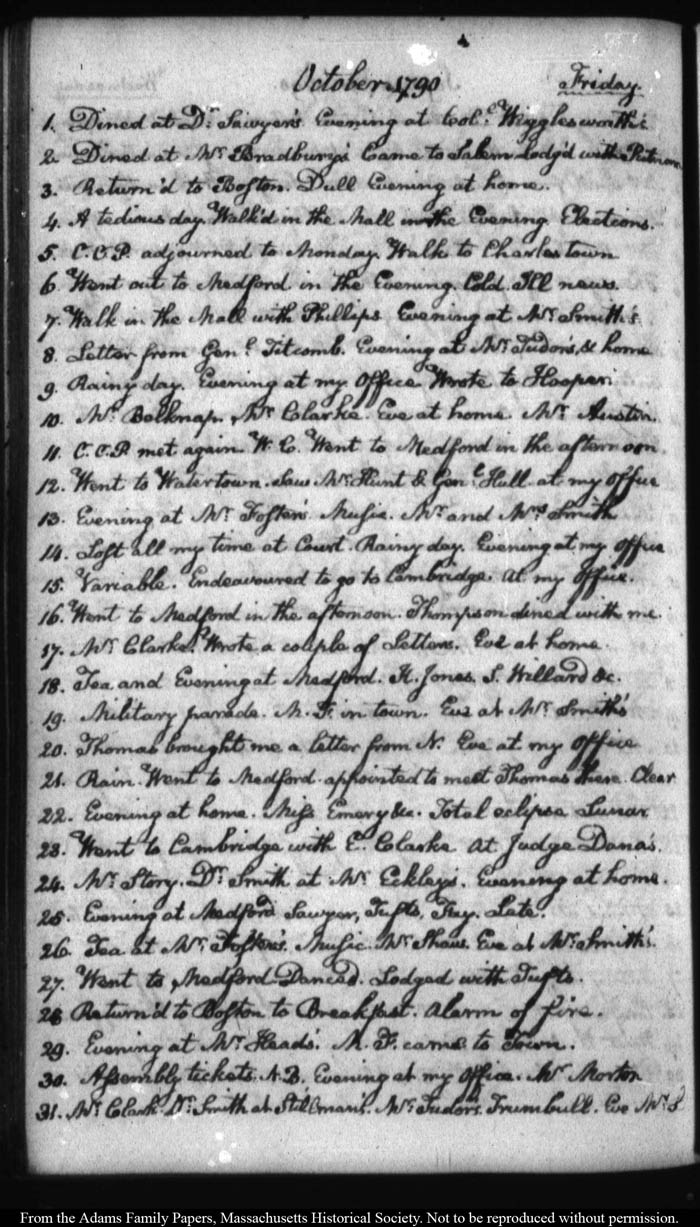 October 1790 Friday.
1. Dined at Dr. Sawyer's. Evening at Coll. Wigglesworth's
2. Dined at Mr. Bradbury's Came to Salem Lodg'd with Putnam
3. Return'd to Boston. Dull Evening at home.
4. A tedious day. Walk'd in the Mall in the Evening Elections.
5. C.C.P. adjourned to Monday. Walk to Charlestown
6. Went out to Medford in the Evening. Cold. Ill news.
7. Walk in the Mall with Phillips Evening at Mr. Smith's
8. Letter from Genl. Titcomb. Evening at Mr. Tudor's, & home
9. Rainy day. Evening at my Office Wrote to Hooper.
10. Mr. Belknap. Mr. Clarke. Eve at home. Mr. Austin.
11. C.C.P. met again. W.C. Went to Medford in the afternoon.
12. Went to Watertown. Saw Mr. Hunt & Genl. Hull at my office
13. Evening at Mr. Foster's. Music. Mr. and Mrs. Smith
14. Lost all my time at Court. Rainy day. Evening at my Office
15. Variable. Endeavoured to go to Cambridge. At my Office.
16. Went to Medford in the afternoon. Thompson dined with me.
17. Mr. Clarke. Wrote a couple of Letters. Eve at home.
18. Tea and Evening at Medford. H. Jones. S. Willard &c.
19. Military parade. M.F. in town. Eve at Mr. Smith's
20. Thomas brought me a letter from N. Eve at my Office
21. Rain. Went to Medford. appointed to meet Thomas there. Clear
22. Evening at home. Miss Emery &c. Total eclipse Lunar
23. Went to Cambridge with E. Clarke at Judge Dana's.
24. Mr. Story. Dr. Smith at Mr. Eckley's. Evening at home.
25. Evening at Medford Sawyer, Tufts, Fay. Late.
26. Tea at Mr. Foster's. Music. Mr. Shaw. Eve at Mr. Smith's.
27. Went to Medford. Danced. Lodged with Tufts.
28 Return'd to Boston to Breakfast. Alarm of fire.
29. Evening at Mr. Heads'. M.F. came to Town.
30. Assembly tickets. N.B. Evening at my Office. Mr. Morton
31. Mr. Clark. Dr. Smith at Stillman's. Mr. Tudor's. Trumbull. Eve Mr. S
From the Adams Family Papers, Massachusetts Historical Society. Not to be reproduced without permission.